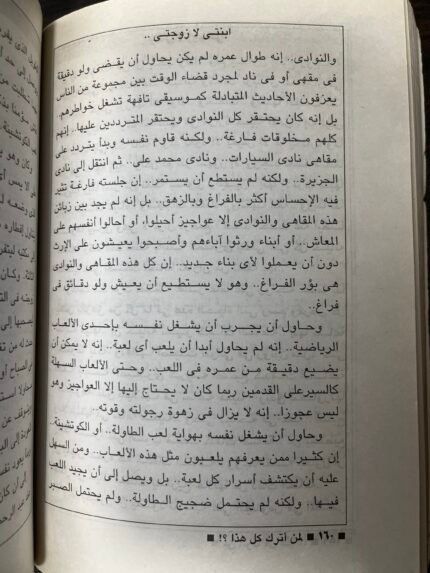 ابنتى لا زوجتى ..
والنوادى.. إنه طوال عمره لم يكن يحاول أن يقضى ولو دقيقة
فى مقهى أو فى ناد لمجرد قضاء الوقت بين مجموعة من الناس
يعزفون الأحاديث المتبادلة كموسيقى تافهة تشغل خواطرهم.
بل إنه كان يحتقر كل النوادى ويحتقر المترددين عليها.. إنهم
كلهم مخلوقات فارغة.. ولكنه قاوم نفسه وبدأ يتردد على
مقاهى نادى السيارات.. ونادى محمد على.. ثم انتقل إلى نادى
الجزيرة.. ولكنه لم يستطع أن يستمر.. إن جلسته فارغة تثير
فيه الإحساس أكثر بالفراغ وبالزهق.. بل إنه لم يجد بين زبائن
هذه المقاهى والنوادى إلا عواجيز أحيلوا، أو أحالوا أنفسهم على
المعاش.. أو أبناء ورثوا آباءهم وأصبحوا يعيشون على الإرث
دون أن يعملوا لأى بناء جديد.. إن كل هذه المقاهى والنوادى
هى بؤر الفراغ.. وهو لا يستطيع أن يعيش ولو دقائق فى
فراغ..
وحاول أن يجرب أن يشغل نفسه بإحدى الألعاب
الرياضية.. إنه لم يحاول أبدا أن يلعب أى لعبة.. إنه لا يمكن أن
يضيع دقيقة من عمره فى اللعب.. وحتى الألعاب السهلة
كالسيرعلى القدمين ربما كان لا يحتاج إليها إلا العواجيز وهو
ليس عجوزاً.. إنه لا يزال فى زهوة رجولته وقوته..
وحاول أن يشغل نفسه بهواية لعب الطاولة.. أو الكوتشينة..
إن كثيرا ممن يعرفهم يلعبون مثل هذه الألعاب.. ومن السهل
عليه أن يكتشف أسرار كل لعبة.. بل ويصل إلى أن يجيد اللعب
فيها.. ولكنه لم يحتمل ضجيج الطاولة.. ولم يحتمل الصبر
■ ١٦٠ ■ لمن أترك كل هذا ؟! ■